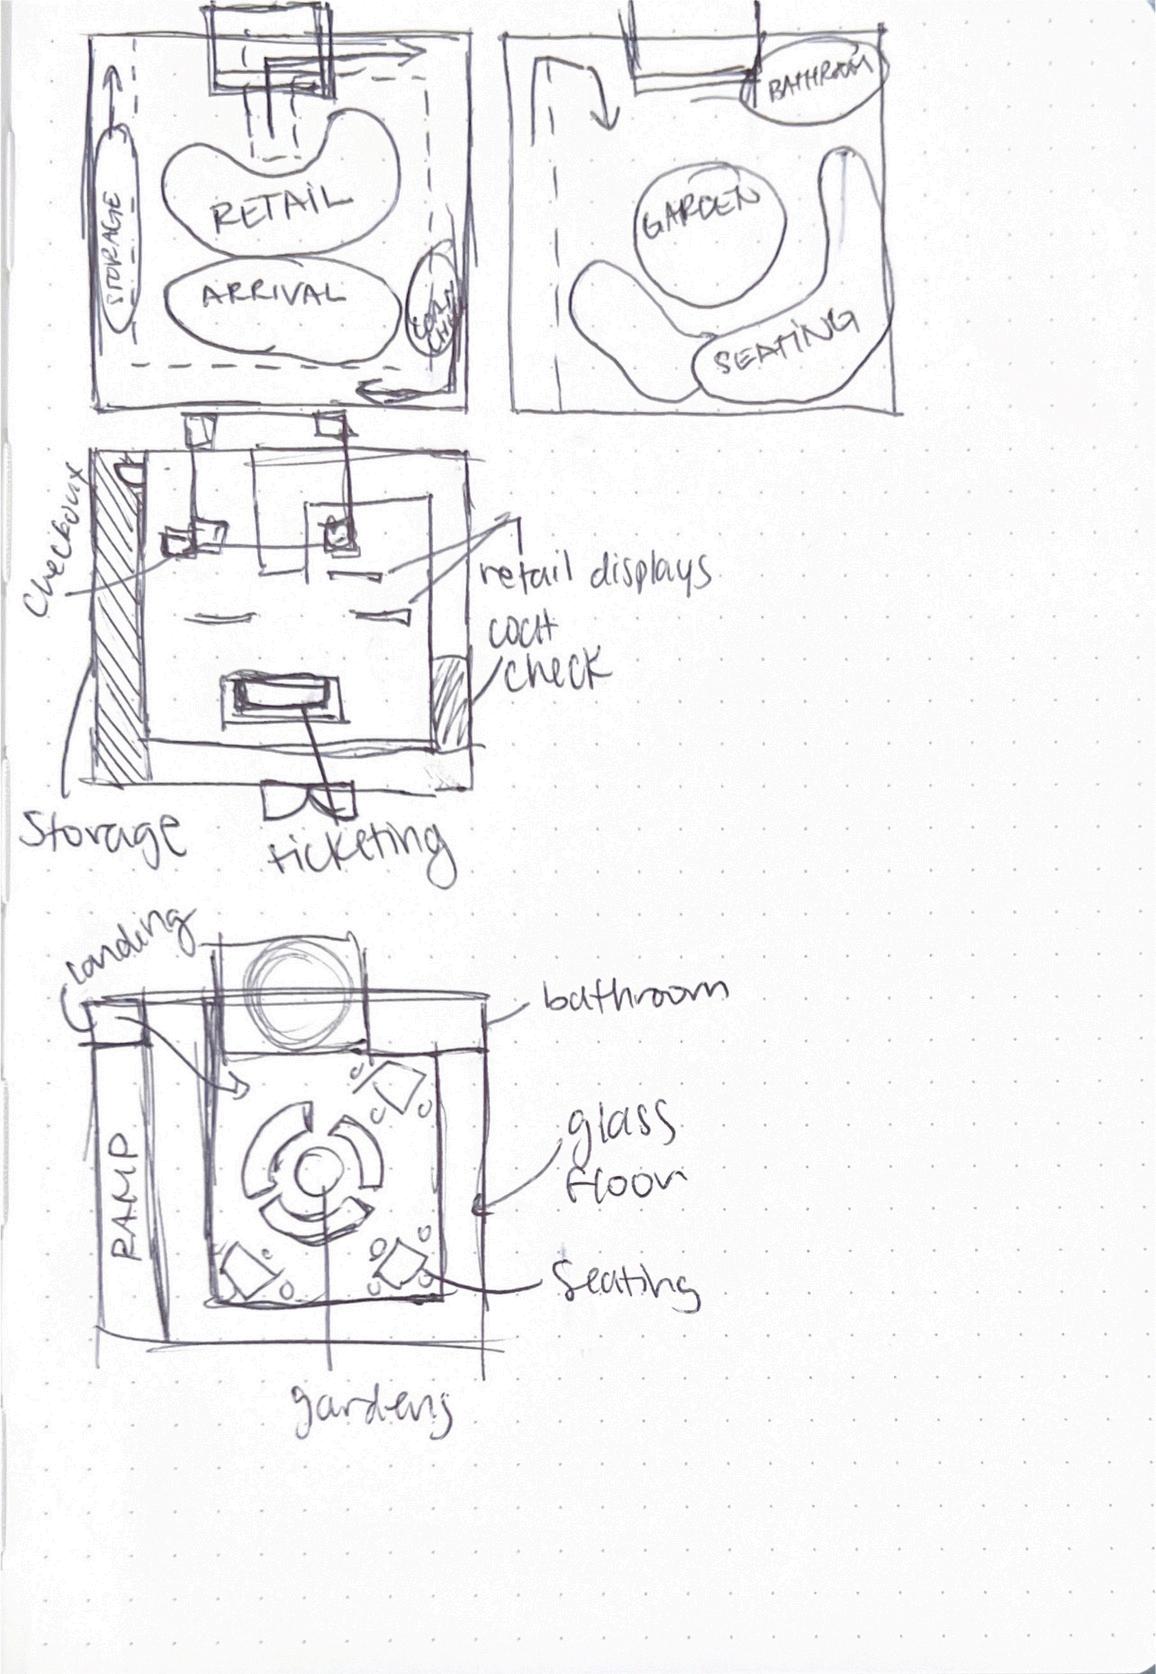 STORAGE
RETAIL
ARRIVAL
COAT
CHK
BATHROOM
GARDEN
SEATING
Checkout
retail displays
coat
check
Storage
ticketing
Landing
bathroom
RAMP
glass
floor
Seating
gardens